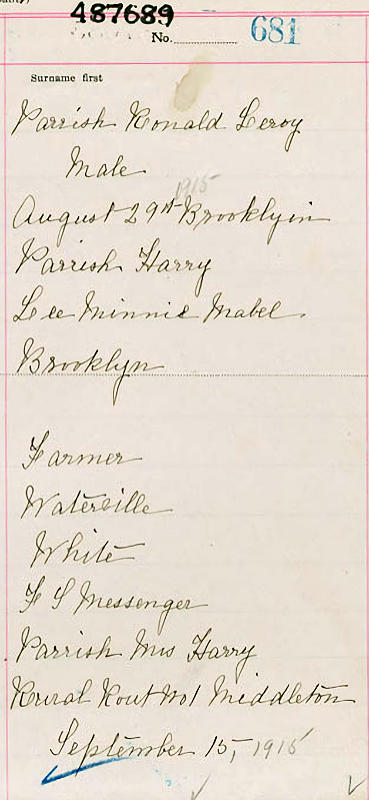 487689
No. 681
Surname first
Parrish Ronald Leroy
Male
1915
August 29th Brooklyin
Parrish Harry
Lee Minnie Mabel.
Brooklyn
Farmer
Waterville
White
F S Messenger
Parrish Mrs Harry
Rural Rout No1 Middleton
September 15, 1915